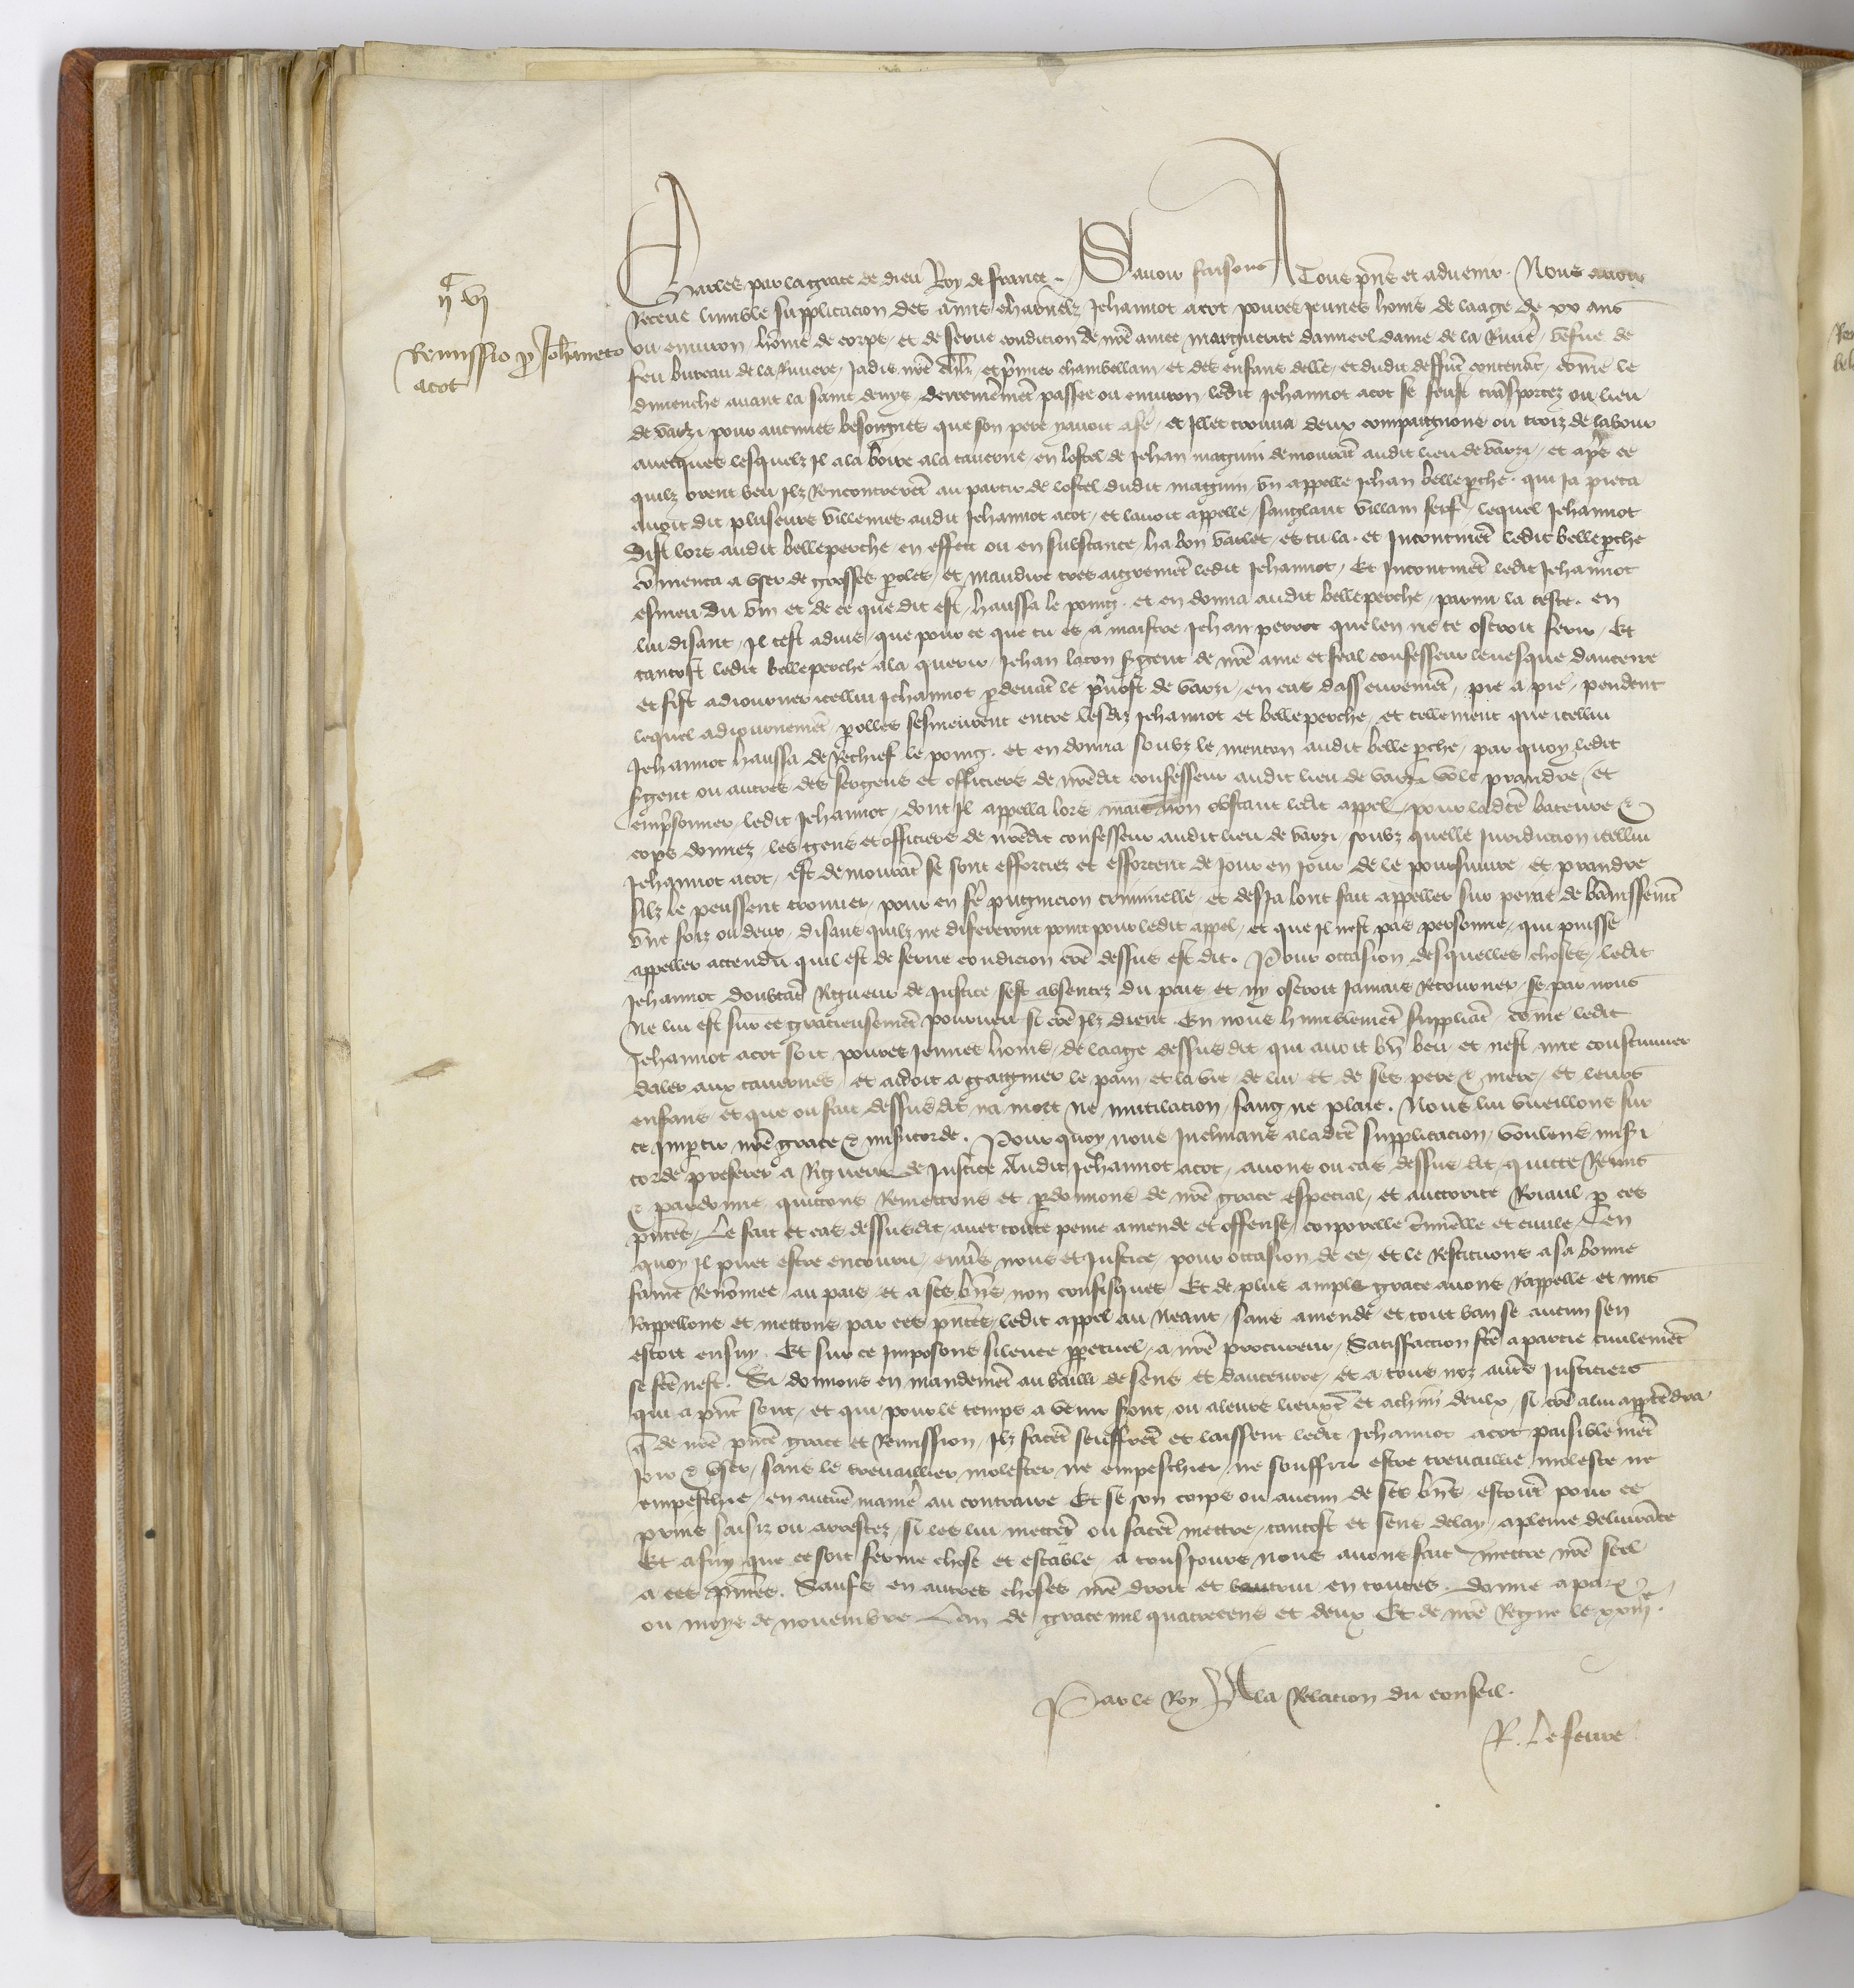 IIc VI
Remissio pro Johanneto
acot
Charles par la grace de dieu Roy de france. Savoir faisons A Tous pñs et advenir. Nous avoir
receue lumble supplicacion des amis charnelz Jehannot acot povres jeunes homs de laage de xv ans
ou environ homē de corps et de serve condicion de nrē amee marguerite danneel dame de la Rivie vefve de
feu bureau de la Riviere Jadis nrē chlr et pmier chambellam et des enfans delle et dudit deffunt contenāt comē le
dimenche avant la saint denys derrenemēt passee ou environ ledit Jehannot acot se feust transportez ou lieu
de varzi pour aucunes besongnes que son pere y avoit a fē et Illec trouva deux compaignons ou troiz de labour
avecques lesquelz Il ala boire a la taverne en lostel de Jehan magnin demourāt audit lieu de varzi et apz ce
quilz orent beu Ilz Rencontrerēt au partir de lostel dudit magnin un appelle Jehan belleperche qui ja pieca
avoit dit pluseurs villenies audit Jehannot acot et lavoit appelle sanglant villain serf lequel Jehannot
dist lors audit belleperche en effect ou en substance ha bon varlet es tu la et Incontinēt ledit belleperche
cōmenca a user de grosses poles et maudire tres aigremēt ledit Jehannot Et Incontinēt ledit Jehannot
esmeu du vin et de ce que dit est haussa le poing et en donna audit belleperche parmi la teste en
lui disant Il test advis que pour ce que tu es a maistre Jehan perrot que len ne te oseroit ferir Et
tantost ledit belleperche ala querir Jehan lacon sgent de nrē ame et feal confesseur levesque daucerre
et fist adiourner icellui Jehannot pdevāt le pvost de varzi en cas dasseuremēt pie a pie pendent
lequel adiournemēt polles sesmeurent entre lesdiz Jehannot et belleperche et tellement que icellui
Jehannot haussa de Rechief le poing et en donna soubz le menton audit belle pche par quoy ledit
sgent ou autres des sergens et officiers de nrēdit confesseur audit lieu de varzi volt prandre et
emprisonner ledit Jehannot dont Il appella lors mais non obstant ledit appel pour ladcē bateure &
cops donnez les gens et officiers de nrēdit confesseur audit lieu de varzi soubz quelle Juridicion icellui
Jehannot acot est demourāt se sont efforciez et efforcent de Jour en Jour de le poursuivre et prandre
silz le peussent trouver pour en fē pugnicion criminelle et desja lont fait appeller sur peine de bānissemēt
une foiz ou deux disans quilz ne difereront point pour ledit appel et que Il nest pas personne qui puisse
appeller attendu quil est de serve condicion cōe dessus est dit. Pour occasion desquelles choses ledit
Jehannot doubtāt Rigueur de Justice sest absentez du pais et ny oseroit Jamais Retourner se par nous
Ne lui est sur ce gracieusemēt pourveu si cōe Ilz dient En nous humblemēt suppliāt comē ledit
Jehannot acot soit povres jeunes homs de laage dessus dit qui avoit bn beu et nest mie coustumier
daler aux tavernes et aidoit a gaigner le pain et la vie de lui et de ses pere & mere et leurs
enfans et que ou fait dessusdit na mort ne mutilacion sang ne plaie. Nous lui vueillons sur
ce Impartir nrē grace & misericorde. Pour quoy nous Inclinans a ladcē supplicacion voulens miseri
corde preferer a Rigueur de Justice Audit Jehannot acot avons ou cas dessus dit quitte Remis
& pardonne quittons Remettons et pdonnons de nrē grace especial et auctorite Roiaul p ces
pntes Le fait et cas dessusdit avec toute peine amende et offense corporelle criminelle et civile en
quoy Il puet estre encouru envs nous et Justice pour occasion de ce et le Restituons a sa bonne
fame Renōmee au pais et a ses bns non confisquez Et de plus ample grace avons Rappelle et mis
Rappellons et mettons par ces pntes ledit appel au Neant sans amende et tout ban se aucun sen
estoit ensuy. Et sur ce Imposons silence ppetuel a nrē procureur Satisfaccion fcē a partie civilemēt
se fcē nest. Si donnons en mandemēt au bailli de sens et daucerre et a tous noz autēs Justiciers
qui a pnt sont et qui pour le temps a venir sont ou a leurs lieuxtē et a chūn deulx si cōe a lui appartēdra
q de nrē pntē grace et Remission Ilz facēt seuffrēt et laissent ledit Jehannot acot paisiblemēt
Joir & user sans le travaillier molester ne empeschier ne souffrir estre travaillie moleste ne
empeschie en aucune maniē au contraire Et se son corps ou aucun de ses bns estoiēt pour ce
prins saisiz ou arrestez si les lui mettēt ou facēt mettre tantost et sens delay a pleine delivrāce
Et a finy que ce soit ferme chose et estable a tousjours nous avons fait mettre nrē seel
a ces pntes. Sauf en autres choses nrē droit et lautrui en toutes. Donne a paris
ou moys de novembre Lan de grace mil quatrecens et deux Et de nrē Regne le xxiiie.
Par le Roy A la Relacion du conseil.
P. Lefevre